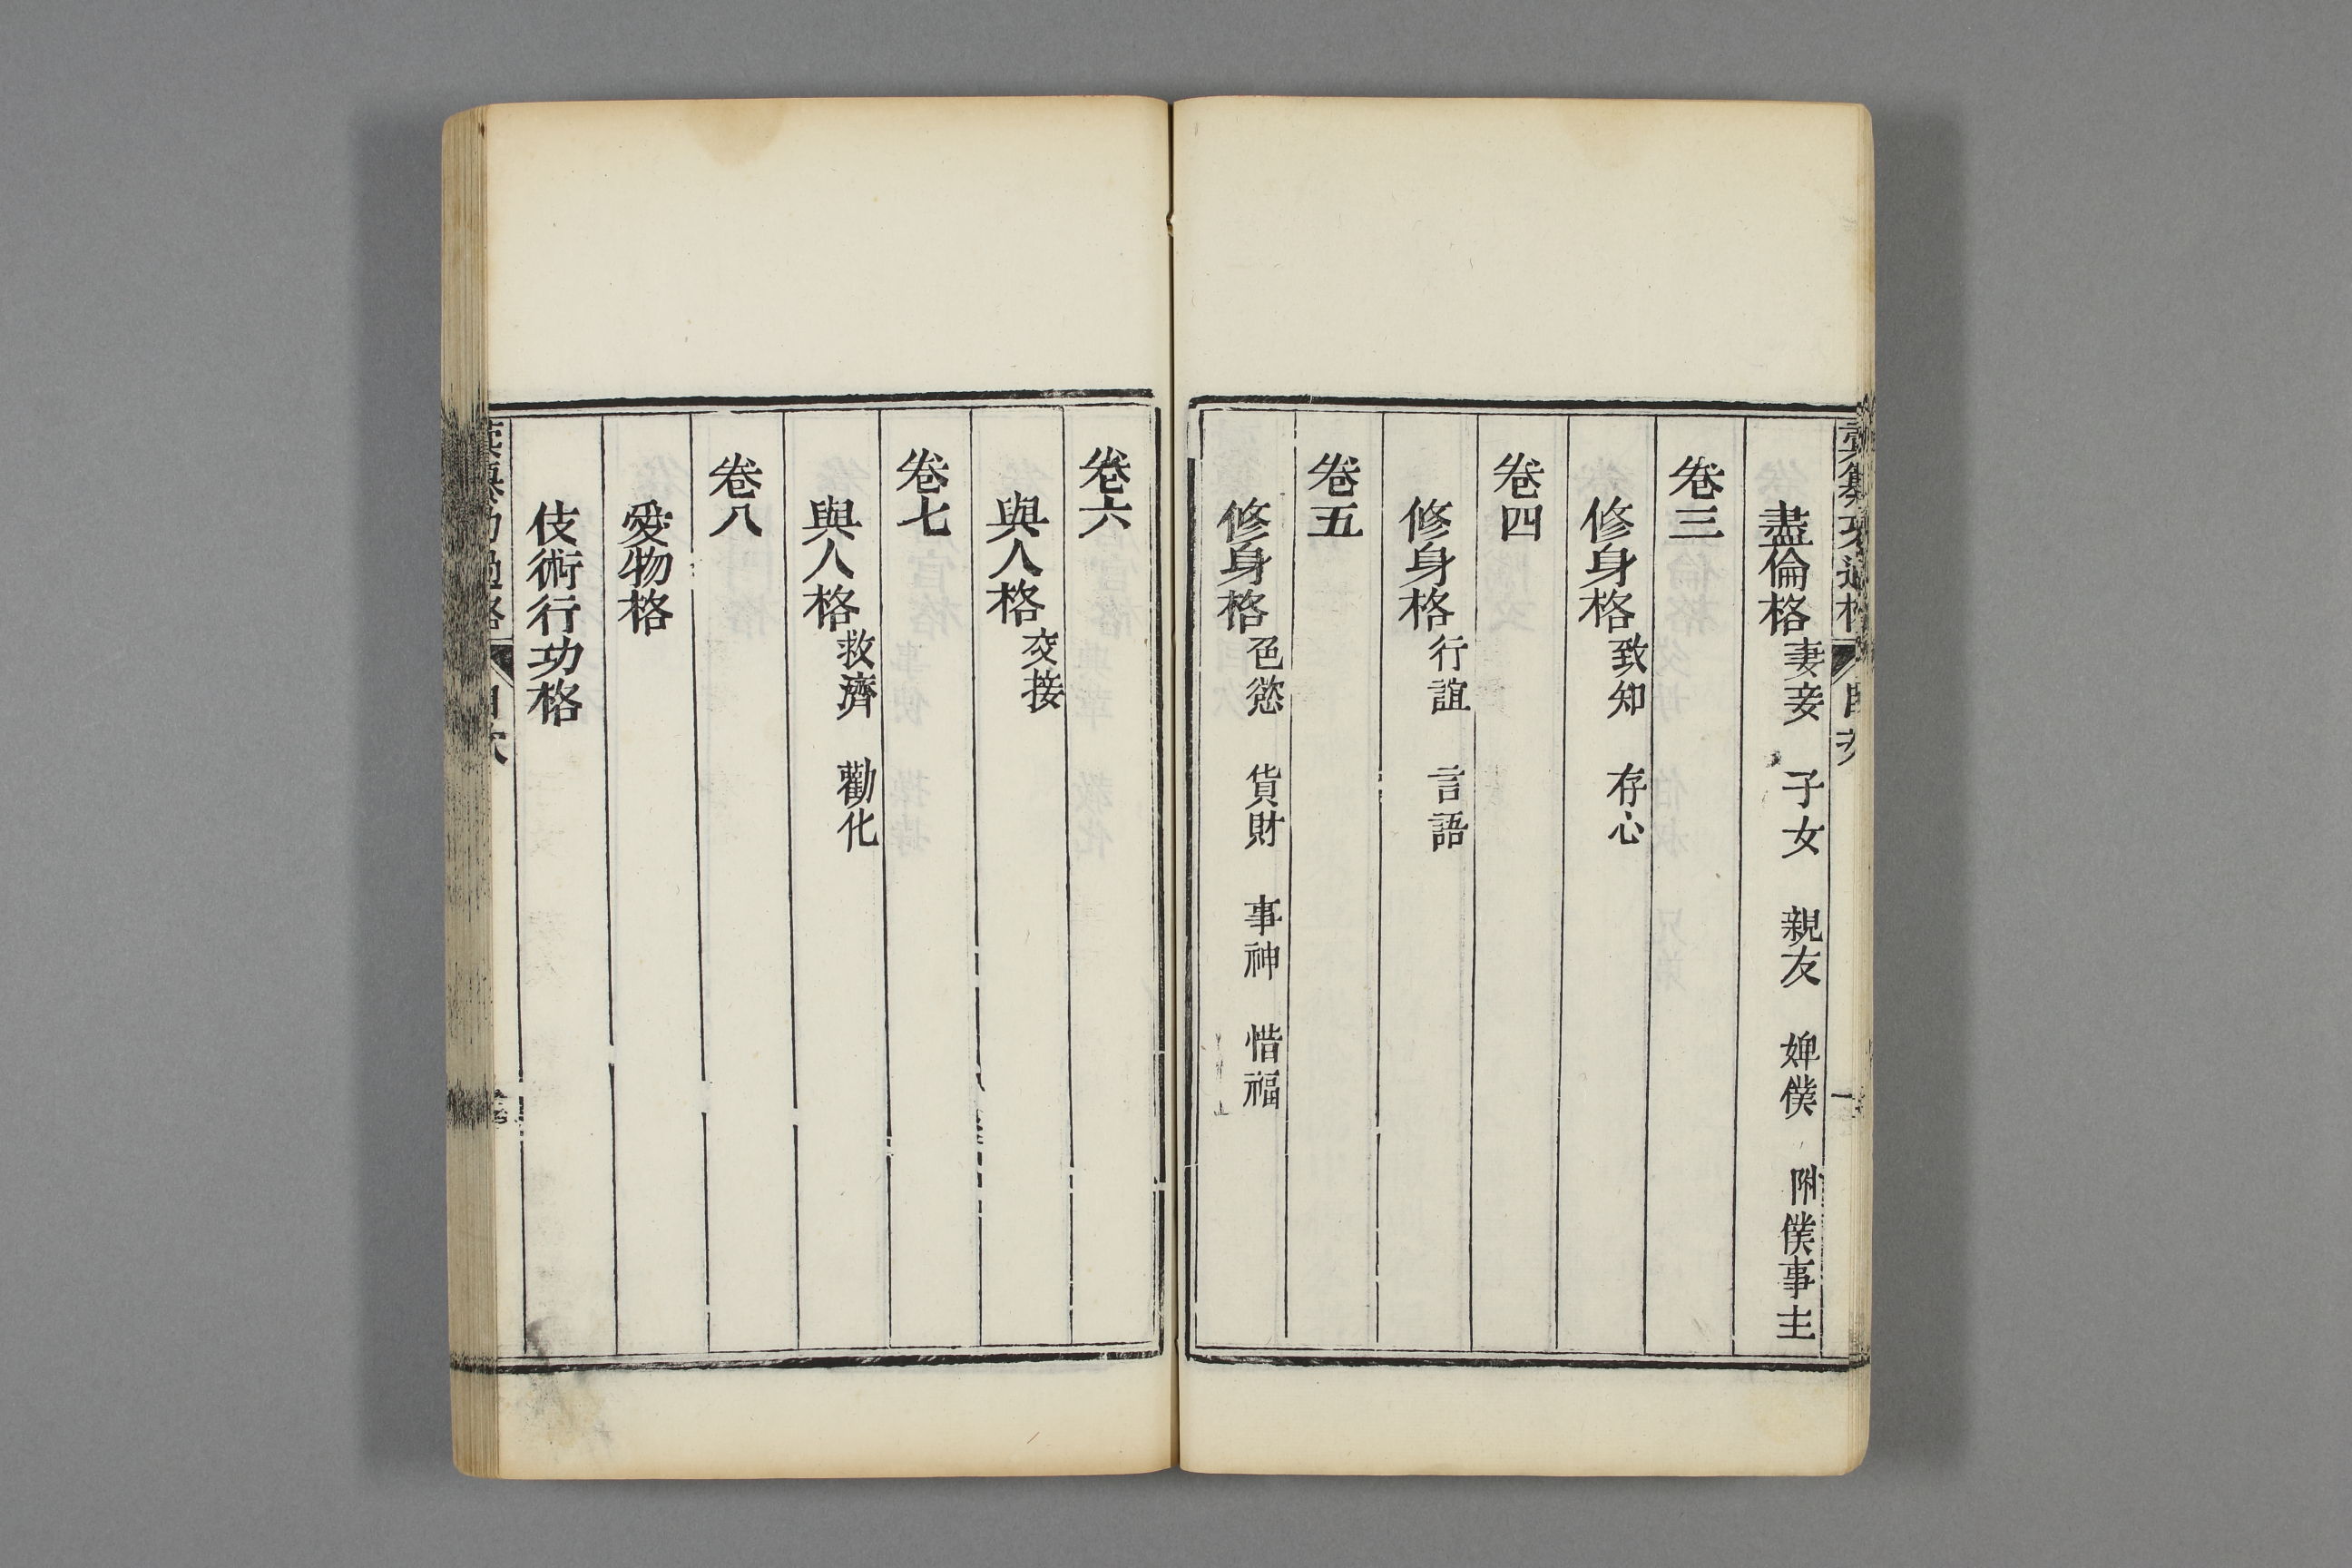 盡倫格 妻妾 子女 親友 婢僕 附僕事主
卷三
修身格 致知 存心
卷四
修身格 行誼 言語
卷五
修身格 色慾 貨財 事神 惜福
卷六
與人格 交接
卷七
與人格 救濟 勸化
卷八
愛物格
伎術行功格